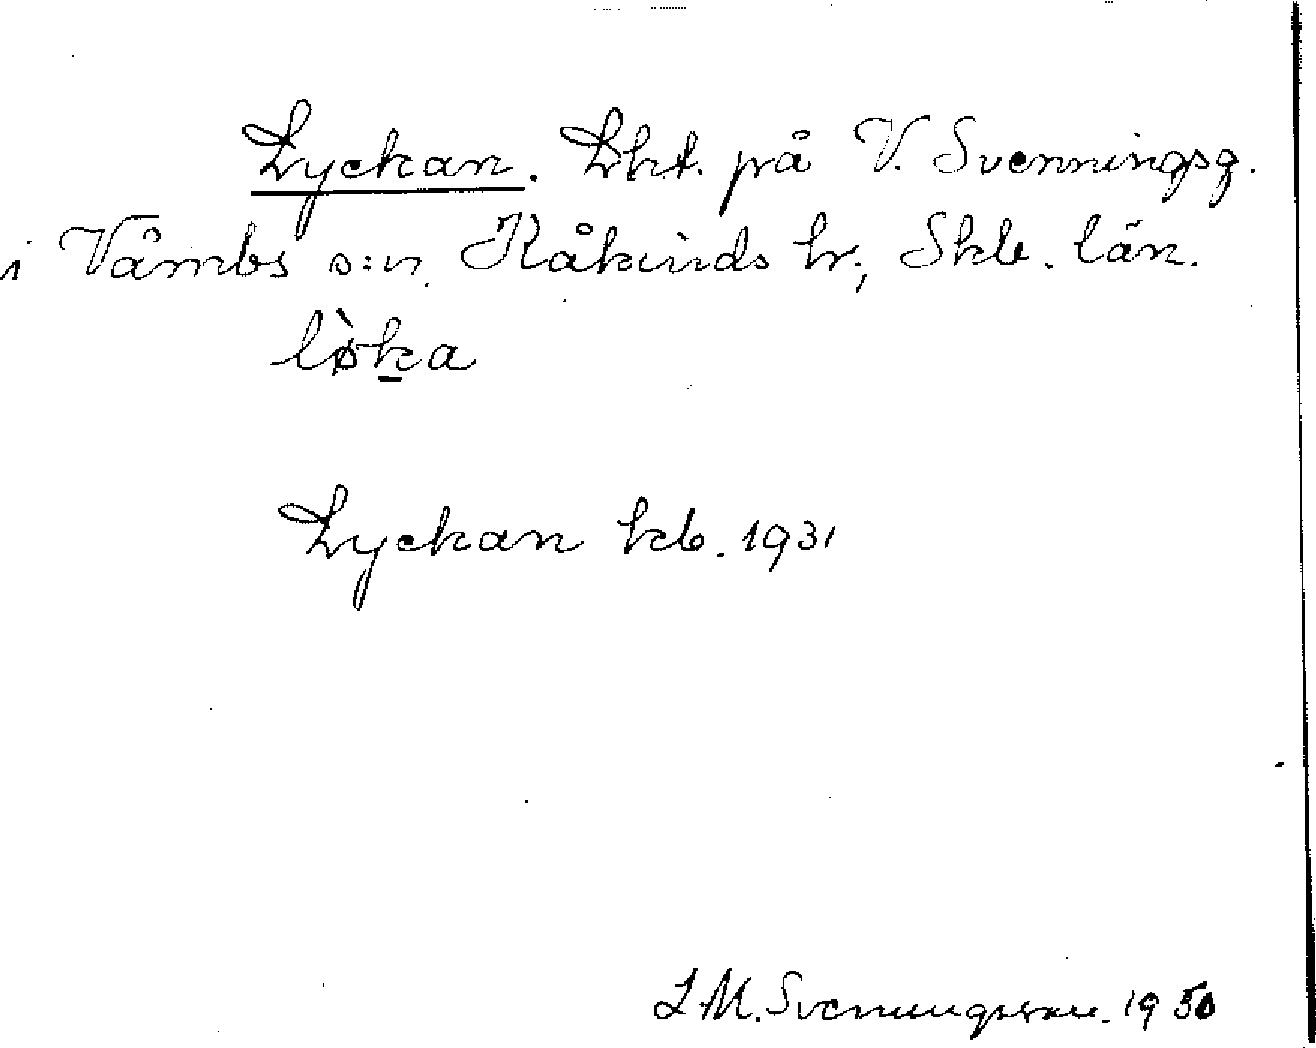 Lyckan. Lht. på V. Svenningsg.
i Våmbs s:n. Kåkinds hr, Skb. län.
lø̀ka
Lyckan kb. 1931
L M. Svenningsson. 1950